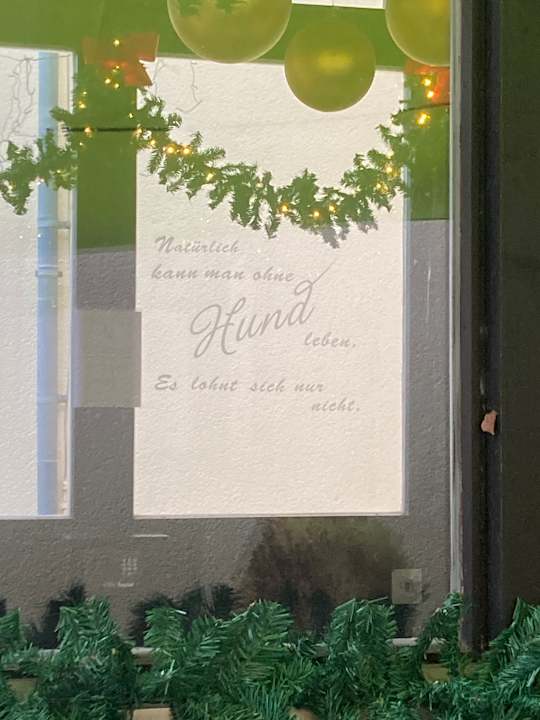 Natürlich
kann man ohne
Hund
leben.
Es lohnt sich nur
nicht.